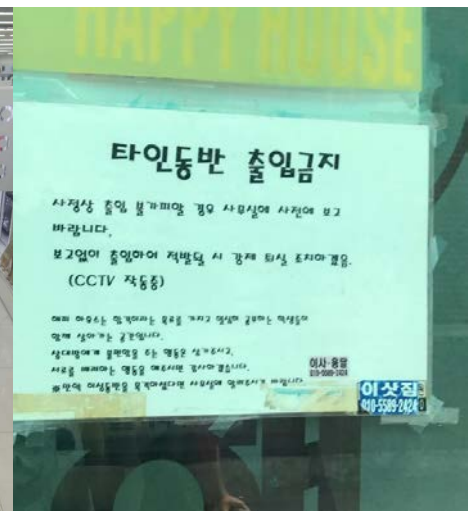 HAPPY HOUSE
타인동반 출입금지
사정상 출입 불가피할 경우 사무실에 사전에 보고
바랍니다.
보고없이 출입하여 적발될 시 강제 퇴실 조치하겠음.
(CCTV 작동중)
해피 하우스는 합격이라는 목표를 가지고 열심히 공부하는 학생들이
함께 살아가는 공간입니다.
상대방에게 불편함을 주는 행동은 삼가주시고,
서로를 배려하는 행동을 해주시면 감사하겠습니다.
※만약 이성동반을 목격하셨다면 사무실에 말해주시기 바랍니다.
이사·용달
010-5589-2424
이삿짐
010-5589-2424